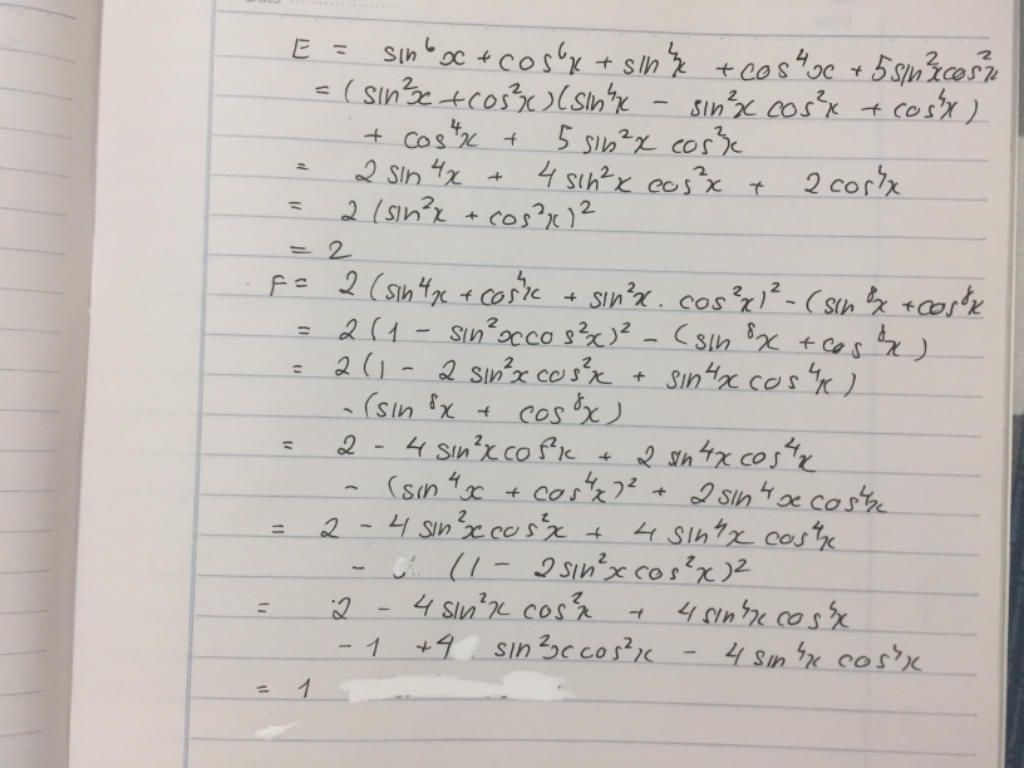 E = sin⁶x + cos⁶x + sin⁴x + cos⁴x + 5sin²xcos²x
= (sin²x + cos²x)(sin⁴x - sin²x cos²x + cos⁴x)
+ cos⁴x + 5 sin²x cos²x
= 2 sin⁴x + 4 sin²x cos²x + 2 cos⁴x
= 2 (sin²x + cos²x)²
= 2
F = 2 (sin⁴x + cos⁴x + sin²x . cos²x)² - (sin⁸x + cos⁸x
= 2 (1 - sin²x cos²x)² - (sin⁸x + cos⁸x)
= 2(1 - 2 sin²x cos²x + sin⁴x cos⁴x)
- (sin⁸x + cos⁸x)
= 2 - 4 sin²x cos²x + 2 sin⁴x cos⁴x
- (sin⁴x + cos⁴x)² + 2 sin⁴x cos⁴x
= 2 - 4 sin²x cos²x + 4 sin⁴x cos⁴x
- (1 - 2 sin²x cos²x)²
= 2 - 4 sin²x cos²x + 4 sin⁴x cos⁴x
- 1 + 4 sin²x cos²x - 4 sin⁴x cos⁴x
= 1